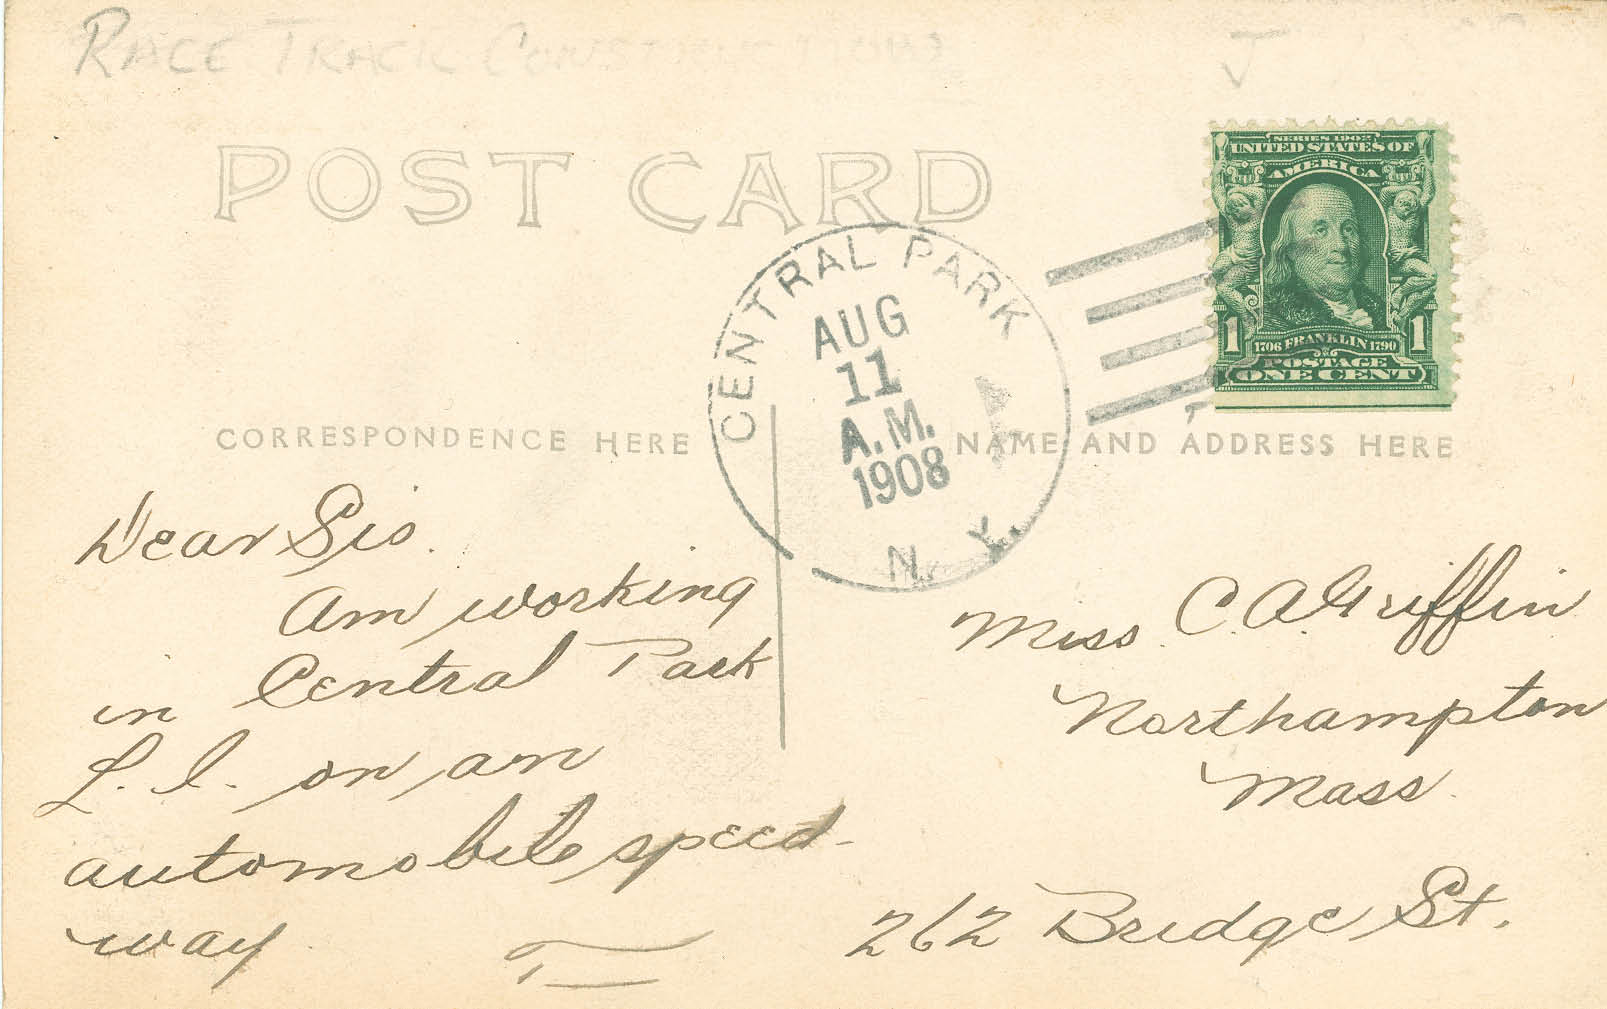 RACE TRACK
J
POST CARD
SERIES 1902
UNITED STATES OF
AMERICA
1 1
1706 FRANKLIN 1790
POSTAGE
ONE CENT
CENTRAL PARK
AUG
11
A.M.
1908
N. Y.
CORRESPONDENCE HERE
NAME AND ADDRESS HERE
Dear Sis.
Am working
in Central Park
L. I. on an
automobile speed-
way
T
Miss. C. A. Griffin
Northampton
Mass.
262 Bridge St.